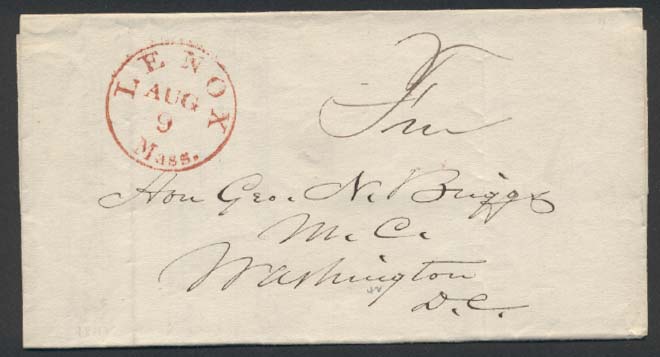 LENOX
AUG
9
Mass.
Free
Hon Geo. N. Briggs
M. C.
Washington
D.C.